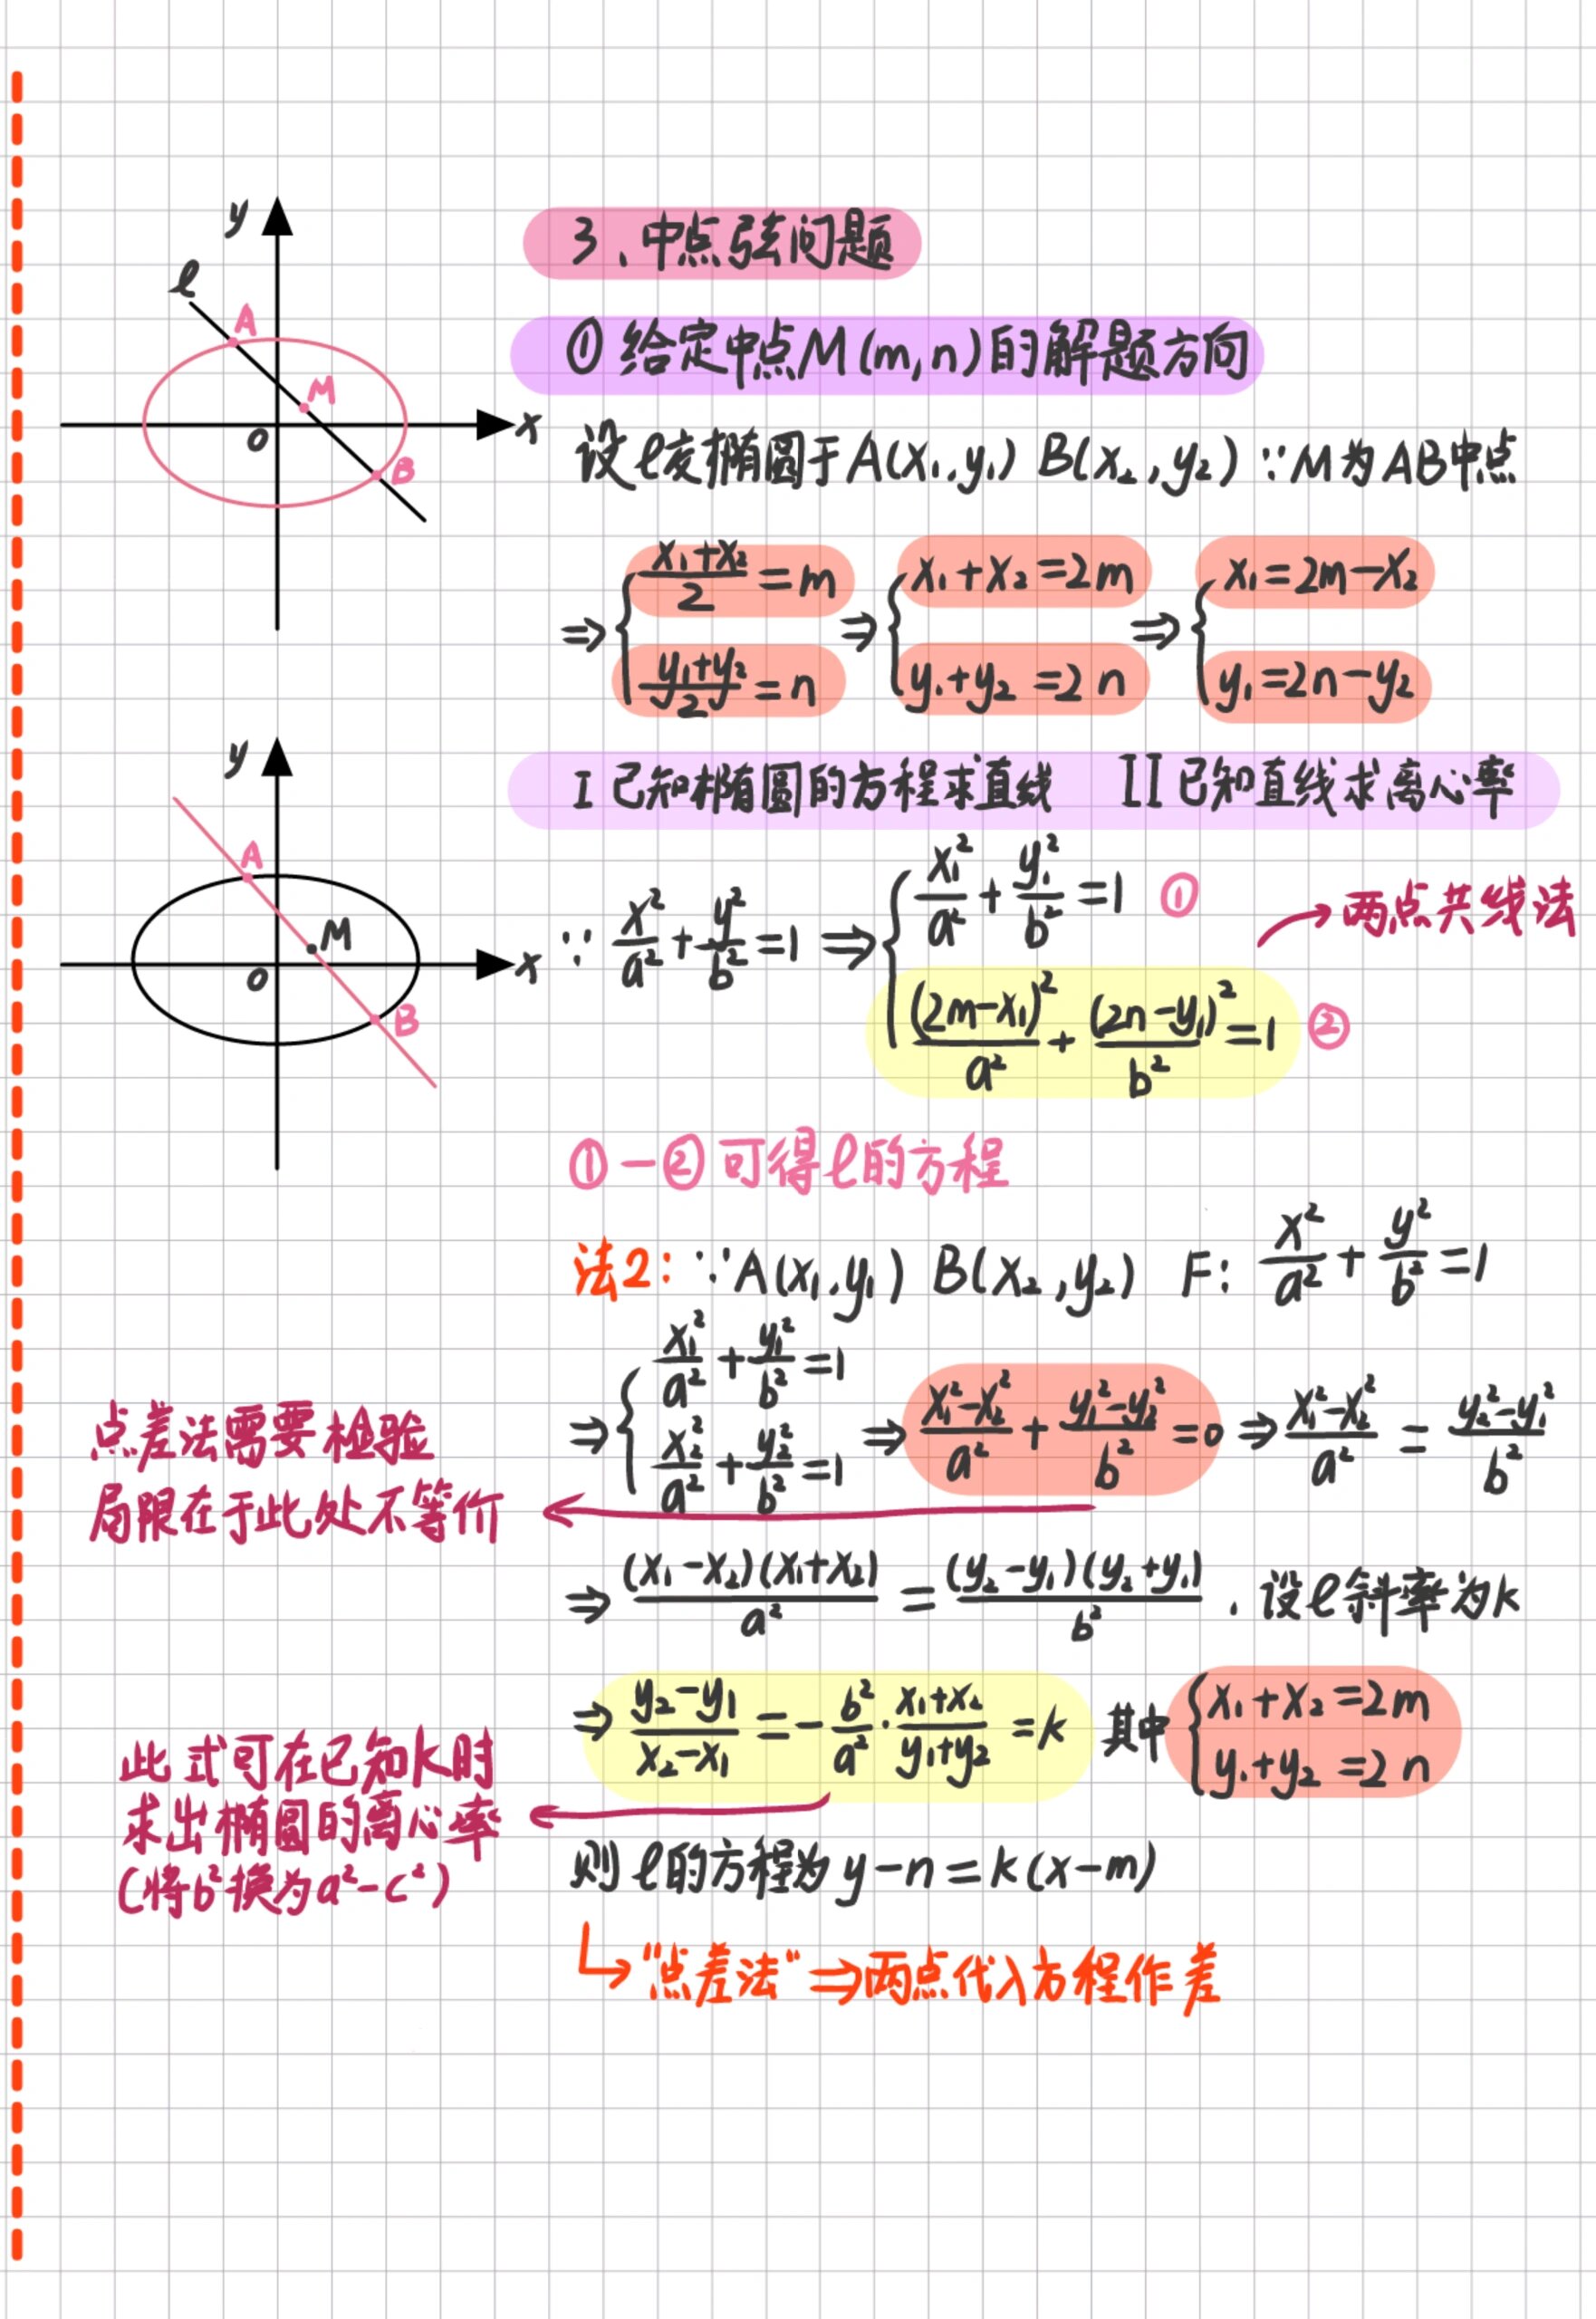 3、中点弦问题
①给定中点M(m,n)的解题方向
y
l
A
M
B
O
x
设l交椭圆于A(x₁,y₁) B(x₂,y₂) ∵M为AB中点
⇒{(x₁+x₂)/2=m ⇒{x₁+x₂=2m ⇒{x₁=2m-x₂
(y₁+y₂)/2=n y₁+y₂=2n y₁=2n-y₂
I 已知椭圆的方程求直线 II 已知直线求离心率
y
A
M
B
O
x
∵ x²/a²+y²/b²=1 ⇒{x₁²/a²+y₁²/b²=1 ①
(2m-x₁)²/a²+(2n-y₁)²/b²=1 ②
→两点共线法
①-②可得l的方程
法2:∵A(x₁,y₁) B(x₂,y₂) F: x²/a²+y²/b²=1
⇒{x₁²/a²+y₁²/b²=1
x₂²/a²+y₂²/b²=1
⇒(x₁²-x₂²)/a²+(y₁²-y₂²)/b²=0 ⇒(x₁²-x₂²)/a²=(y₂²-y₁²)/b²
点差法需要检验
局限在于此处不等价
⇒(x₁-x₂)(x₁+x₂)/a²=(y₂-y₁)(y₂+y₁)/b².设l斜率为k
⇒(y₂-y₁)/(x₂-x₁)=-b²/a²·(x₁+x₂)/(y₁+y₂)=k 其中{x₁+x₂=2m
y₁+y₂=2n
此式可在已知k时
求出椭圆的离心率
(将b²换为a²-c²)
则l的方程为y-n=k(x-m)
↳"点差法"⇒两点代入方程作差